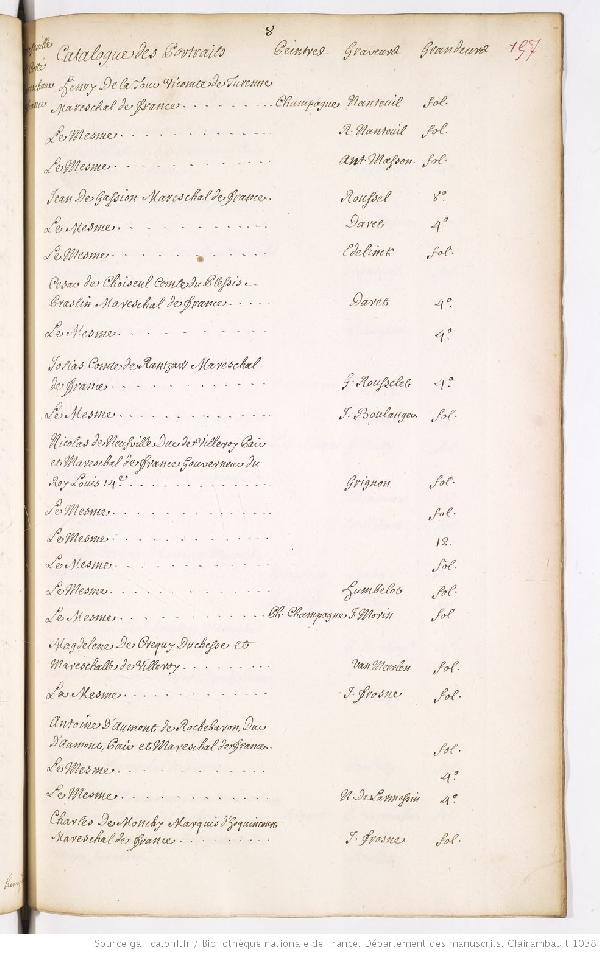 8
Catalogue des Portraits Peintres Graveurs Grandeurs 197
Henry De la Tour Vicomte de Turenne
Mareschal de france Champagne Nanteuil fol.
Le Mesme R. Nanteuil fol.
Le Mesme Ant. Masson fol.
Jean De Gassion Mareschal de france Roussel 8º
Le Mesme Daret 4º
Le Mesme Edelinck fol.
Cesar de Choiseul Comte du Plessis
Praslin Mareschal de france Daret 4º
Le Mesme 4º
Josias Comte de Rantzau Mareschal
de france G. Rousselet 4º
Le Mesme J. Boulanger fol.
Nicolas de Neufville Duc de Villeroy Pair
et Mareschal de france Gouverneur du
Roy Louis 14e Grignon fol.
Le Mesme fol.
Le Mesme 12.
Le Mesme fol.
Le Mesme Humbelot fol.
Le Mesme Ph. Champagne J. Morin fol
Magdelene De Crequy Duchesse et
Mareschalle de Villeroy Van Merlen fol.
La Mesme J. frosne fol.
Antoine D'Aumont de Rochebaron, Duc
D'aumont, Pair et Mareschal de france fol.
Le Mesme 4º
Le Mesme N. De Larmessin 4º
Charles De Monchy Marquis d'hoquincourt
Mareschal de france J. frosne fol.
Source gallica.bnf.fr / Bibliothèque nationale de France. Département des manuscrits. Clairambault 1038